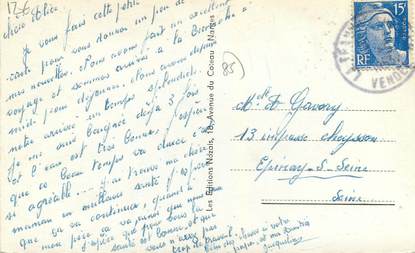 12-6
chère Alice
Je vous fais cette petite
carte pour vous donner un peu de
nos nouvelles. Nous avons fait un excellent
voyage et sommes arrivés à la
midi pour déjeuner. Nous avons depuis
notre arrivée un temps splendide
je me suis baignée déjà 3 fois
et l'eau est très bonne. J'espère
que ce beau temps va durer c'est
si agréable. J'ai trouvé ma chère
maman en meilleure santé
que ça va continuer, quant à
mon père ça va ainsi que nous
J'espère que pour vous la
santé est bonne, et que
vous n'avez pas
trop de travail.
papa et ma
Jacqueline
Les Editions Nozais, 10, Avenue du Coteau, Nantes
85
15F
RF
VENDÉE
Mlle A. Gavory
13 impasse Choysson
Epinay-S-Seine
Seine